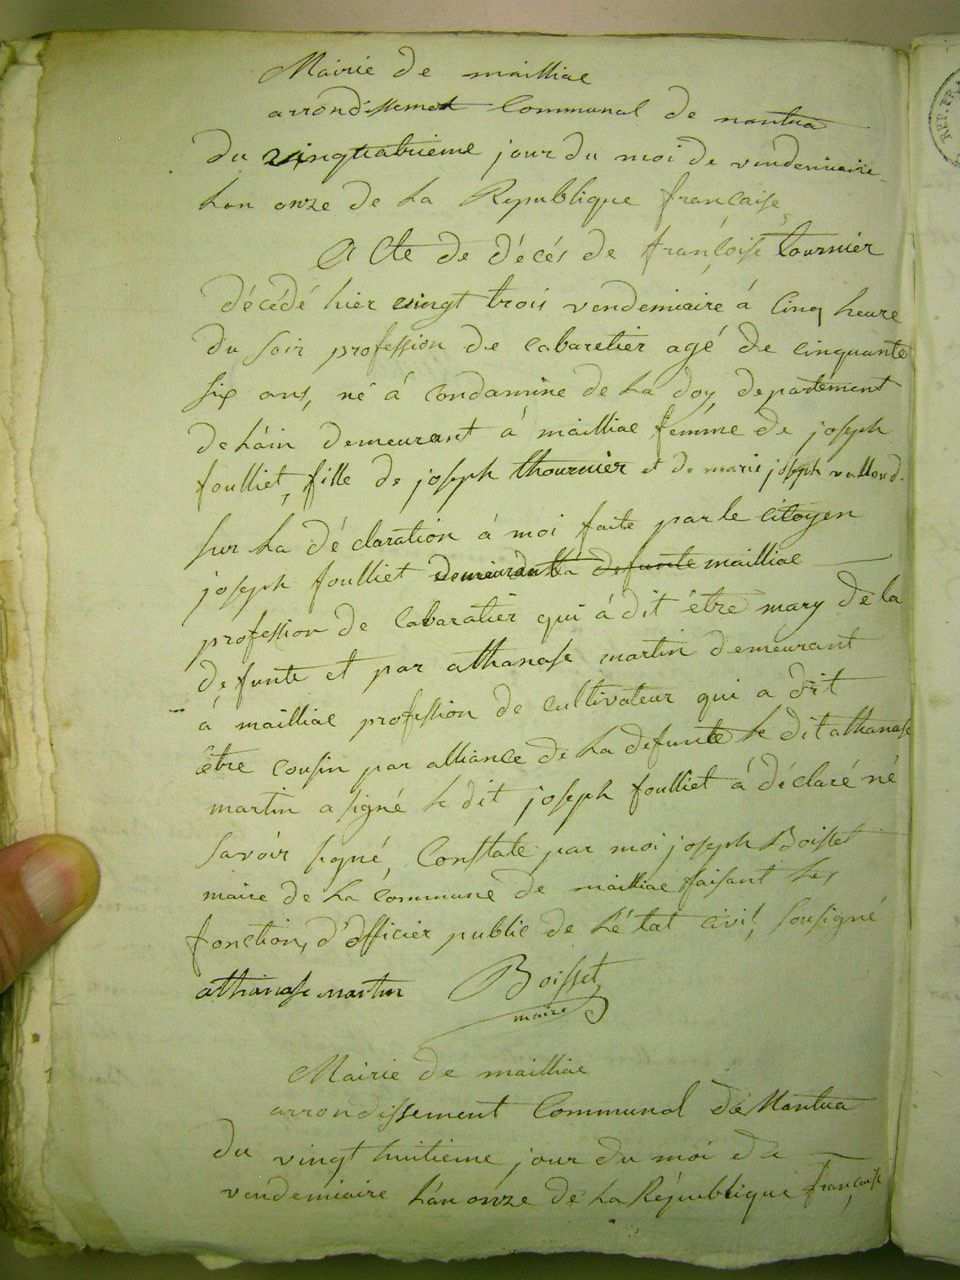 Mairie de mailliac
arrondissemet Communal de nantua
du vingtquatrieme jour du moi de vendemiaire
Lan onze de La Republique francaise
Acte de décés de françoise tournier
décédé hier vingt trois vendemiaire á Cinq heure
du soir profession de Cabaretier agé de cinquante
six ans, né á Condamine de La doy departement
de Láin demeurant á mailliac femme de joseph
foulliet, fille de joseph thournier et de marie joseph
sur La déclaration á moi faite par le citoyen
joseph foulliet demeurant á defunte mailliac
profession de Cabaratier qui á dit être mary de la
defunte et par athanase martin demeurant
á mailliac profession de cultivateur qui a dit
être cousin par alliance de La defunte Le dit athanase
martin a signé Le dit joseph foulliet á déclaré né
savoir signé, Constaté par moi joseph Boisset
maire de La commune de mailliac faisant Les
fonction, d'officier public de Létat civil sousigné
athanase martin Boisset
maire
Mairie de mailliac
arrondissement Communal de Nantua
du vingt huitieme jour du moi de
vendemiaire Lán onze de La Republique française
REP. FRA